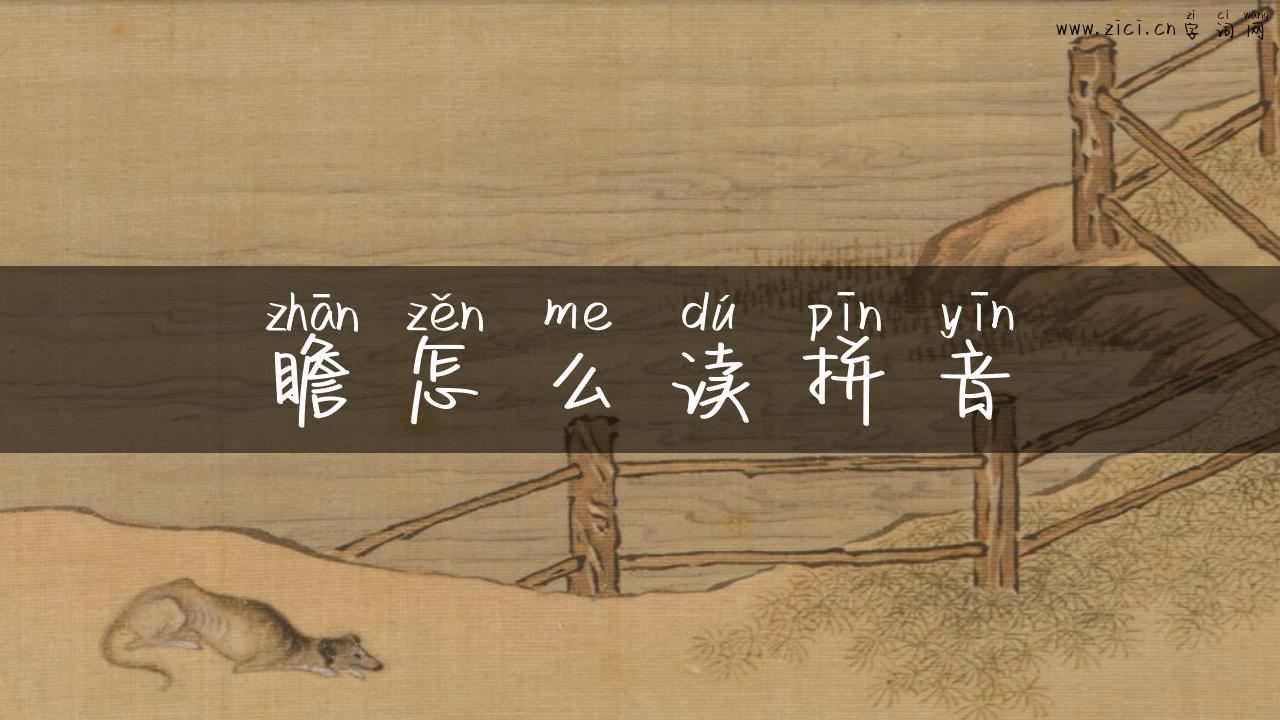 zì cí wǎng
www.zici.cn 字词网
zhān zěn me dú pīn yīn
瞻怎么读拼音